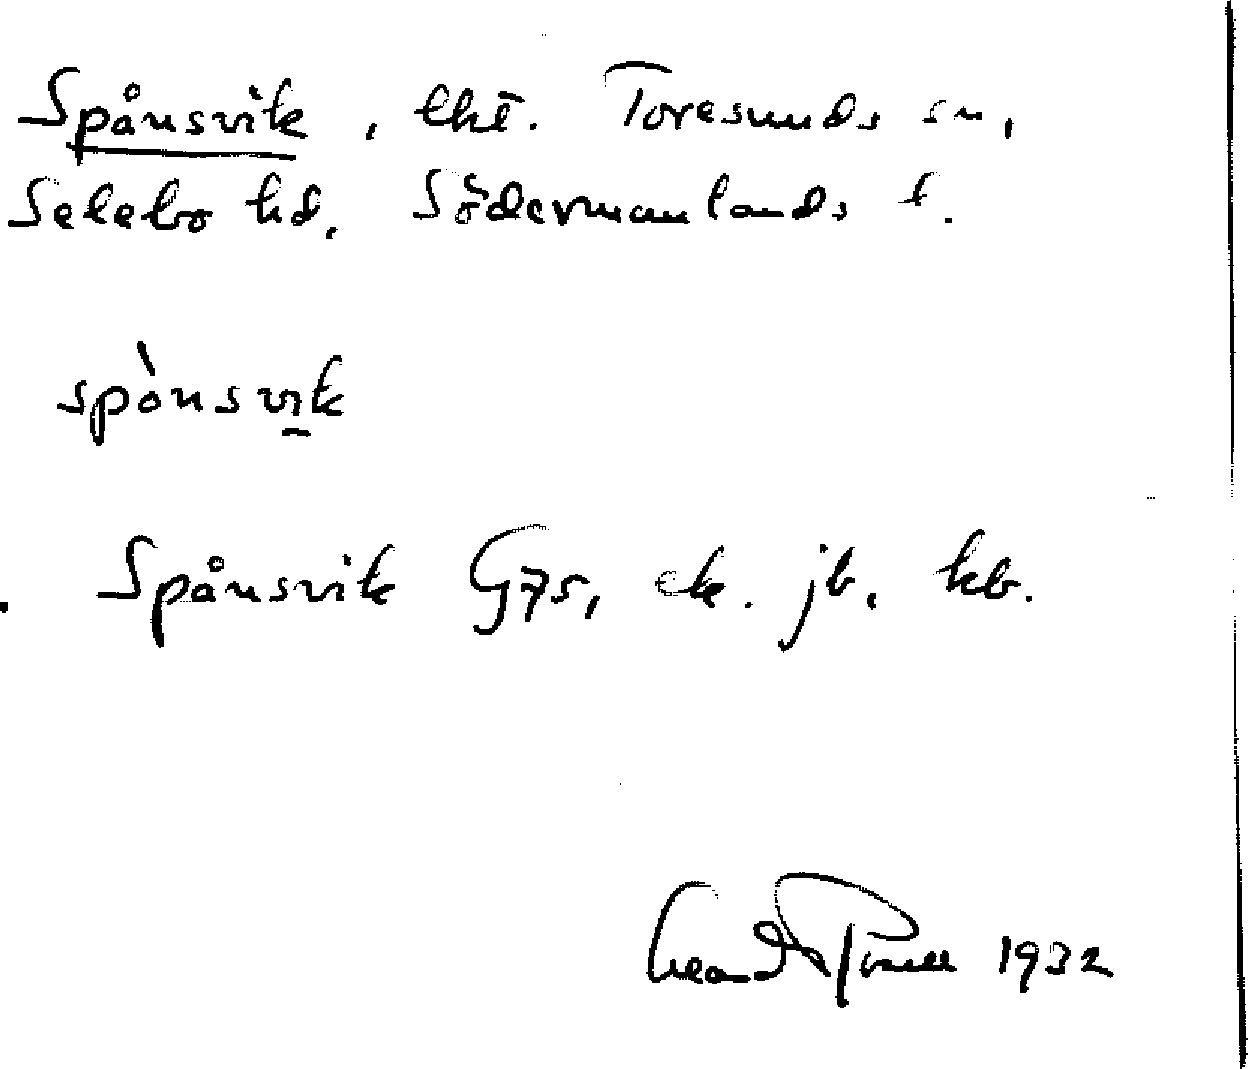 Spånsvik, lht. Toresunds sn,
Selebo hd, Södermanlands l.
spònsvik
. Spånsvik G75, ek. jb, kb.
1932